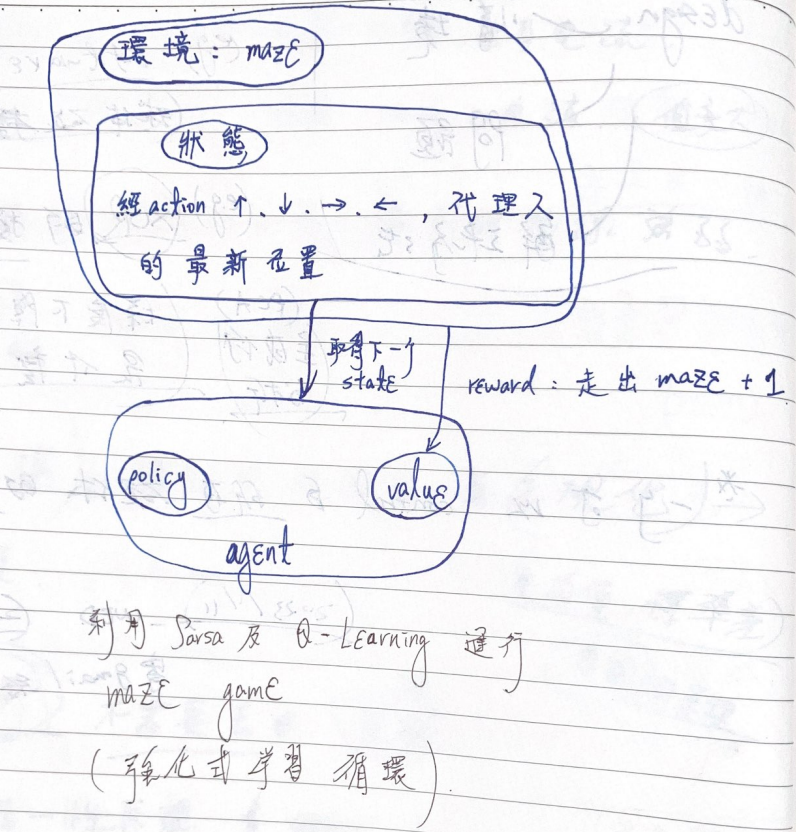 環境：maze
狀態
經action ↑、↓、→、←，代理人
的最新位置
取得下一个
state
reward：走出 maze + 1
policy
value
agent
利用 Sarsa 及 Q-Learning 進行
maze game
(強化式学習 循環)